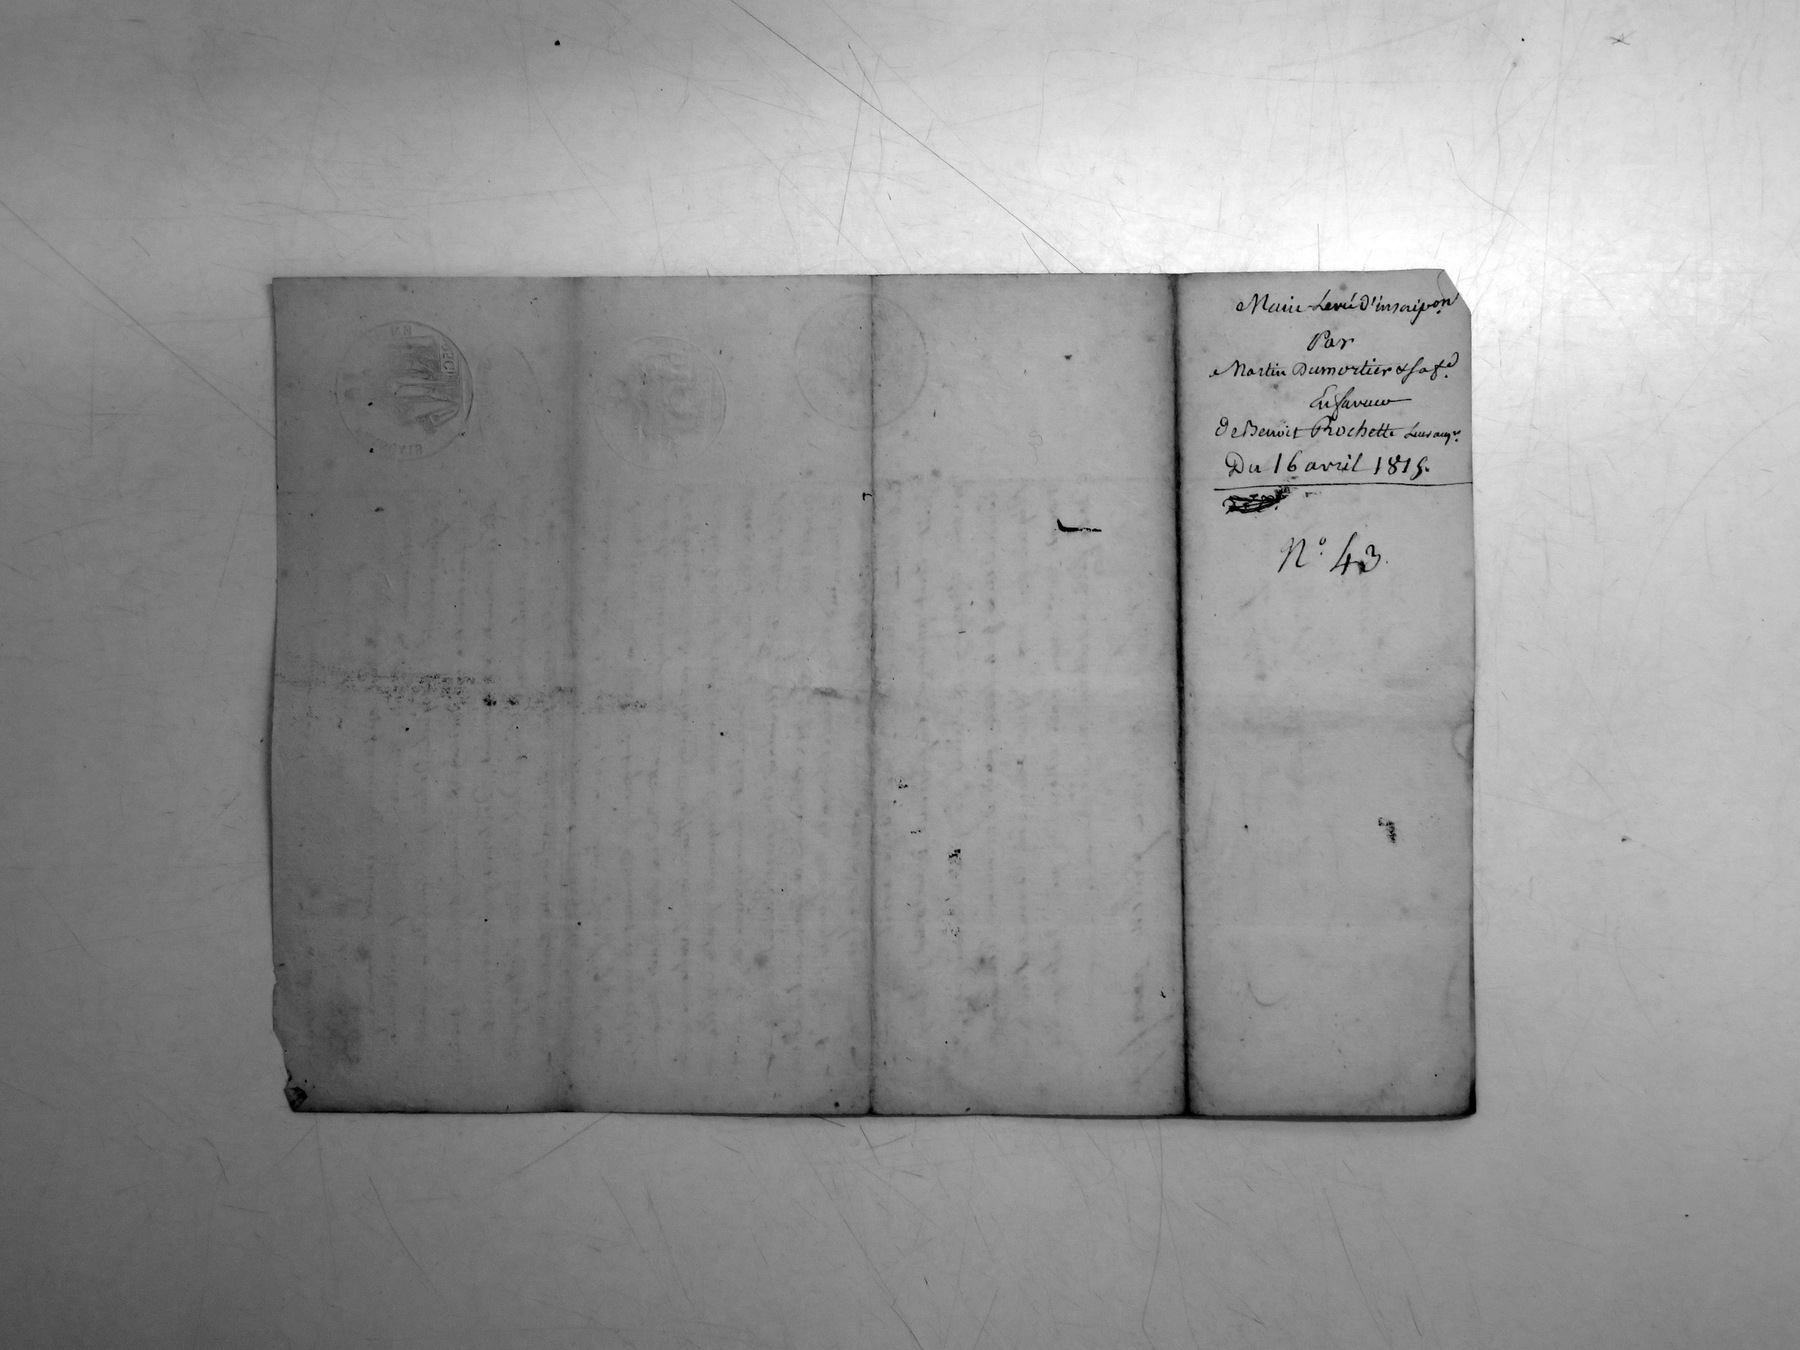 Main Levée D'inscripon
Par
Martin Dumortier & sa fe
En faveur
De Benoit Rochette
Du 16 avril 1815.
N° 43.